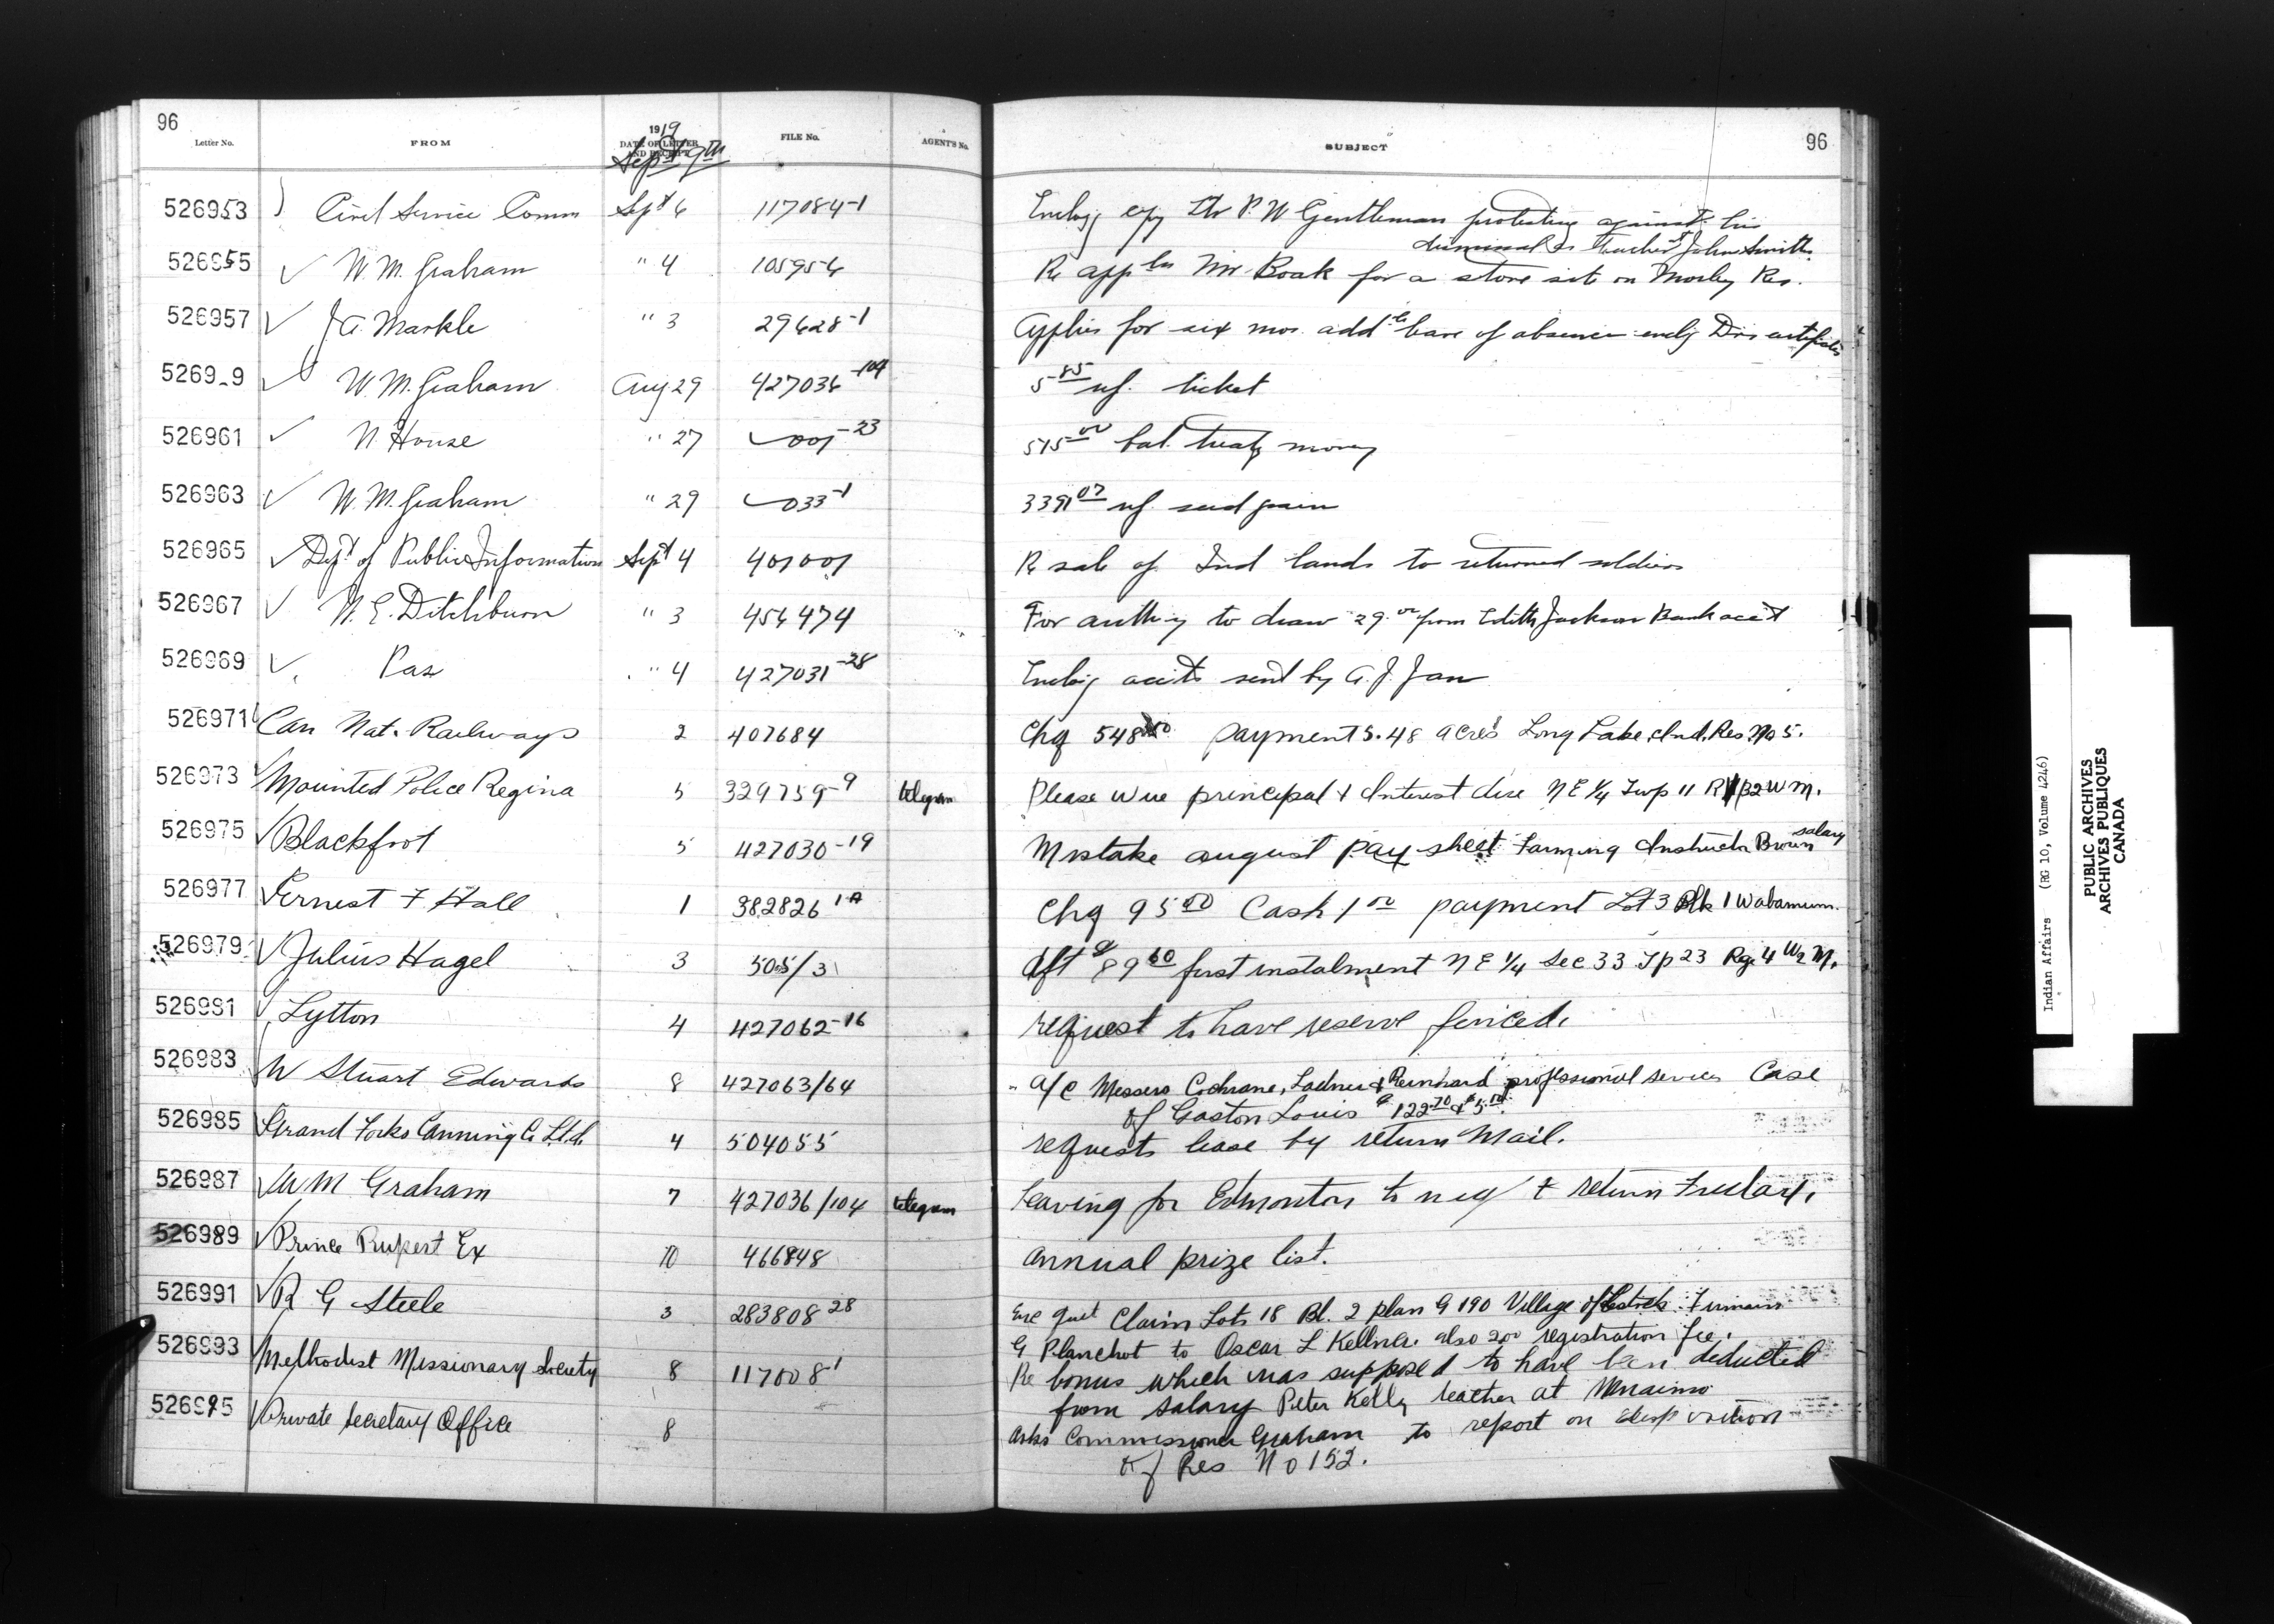 96
Letter No. FROM 1919 DATE OF LETTER AND RECEIPT Sept 9th FILE No. AGENT'S No. SUBJECT 96
526953 Civil Service Comm Sept 6 117084-1 Enclosg copy ltr P. W Gentleman protesting against his
dismissal as teacher St John Smith
526955 W. M. Graham " 4 105954 Re appln Mr Boak for a store site on Morley Res.
526957 J A. Markle " 3 29628-1 Applies for six mos. addl leave of absence enclg Drs certificate
5269 9 W. M. Graham Aug 29 427036-104 5 85 rf. ticket
526961 N House " 27 001-23 515 00 bal. treaty money
526963 W. M. Graham " 29 033-1 3391 07 rf. seed grain
526965 Dept of Public Information Sept 4 401001 Re sale of Ind lands to returned soldiers
526967 W. E. Ditchburn " 3 454474 For authy to draw 29.00 from Edith Jackson Bank acct
526969 Pas " 4 427031-28 Enclosg accts sent by A. J. Jan
526971 Can Nat. Railways 2 407684 Chq 548 payment 5.48 acres Long Lake Ind. Res. No 5.
526973 Mounted Police Regina 5 329759-9 telegram Please wire principal & Interest due NE 1/4 Twp 11 R 32 W M.
526975 Blackfoot 5 427030-19 Mistake august pay sheet Farming Instructor Brown salary
526977 Ernest F. Hall 1 382826 1A Chq 95 00 Cash 1 00 payment Lot 3 Blk 1 Wabamum.
526979 Julius Hagel 3 505/31 dft $89 60 first instalment N E 1/4 Sec 33 Tp 23 Rg. 4 W2 M.
526981 Lytton 4 427062-16 request to have reserve fenced.
526983 W Stuart Edwards 8 427063/64 a/c Messers Cochrane, Ladner & Reinhard professional services Case
of Gaston Louis $122.70 & $5.00.
526985 Grand Forks Canning Co Ltd. 4 504055 requests lease by return Mail.
526987 W M Graham 7 427036/104 telegram Leaving for Edmonton to night & return Friday.
526989 Prince Rupert Ex 10 466848 annual prize list.
526991 R G Steele 3 283808 28 Enc quit Claim Lots 18 Bl. 2 plan G 190 Village of Firmain
G Planchot to Oscar L Kellner. also 200 registration fee.
526993 Methodist Missionary Society 8 117008-1 Re bonus which was supposed to have been deducted
from salary Peter Kelly teacher at Nanaimo
526995 Private Secretary Office 8 asks Commissioner Graham to report on disposition
of Res No 152.
Indian Affairs (RG 10, Volume 4246)
PUBLIC ARCHIVES
ARCHIVES PUBLIQUES
CANADA